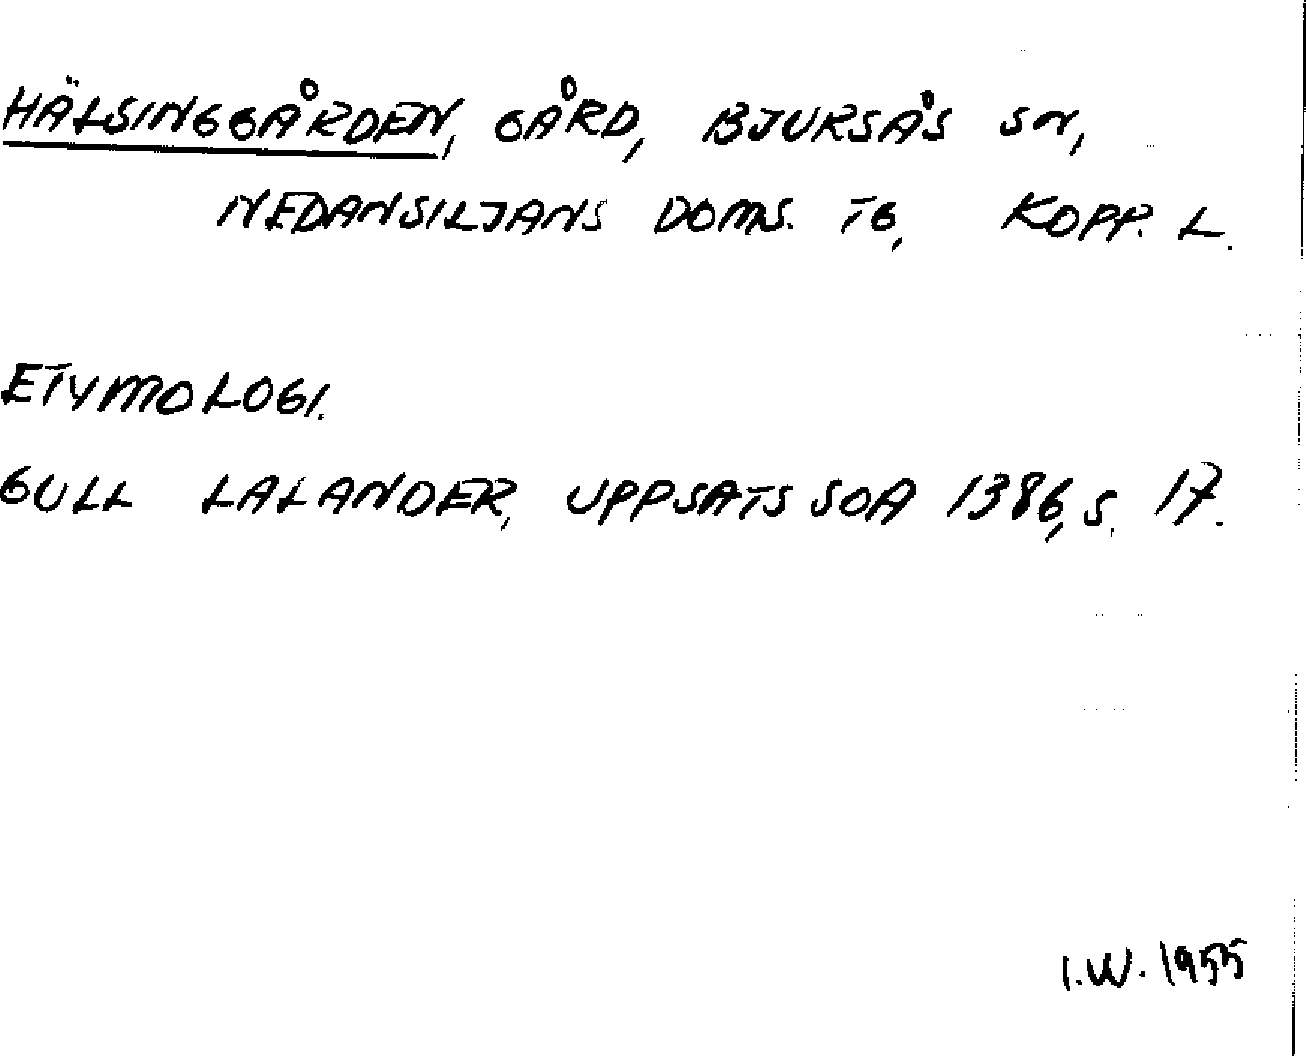 HÄLSINGGÅRDEN, GÅRD, BJURSÅS SN,
NEDANSILJANS DOMS. TG, KOPP. L.
ETYMOLOGI.
GULL LALANDER, UPPSATS SOA 1386, S. 17.
I.W. 1955